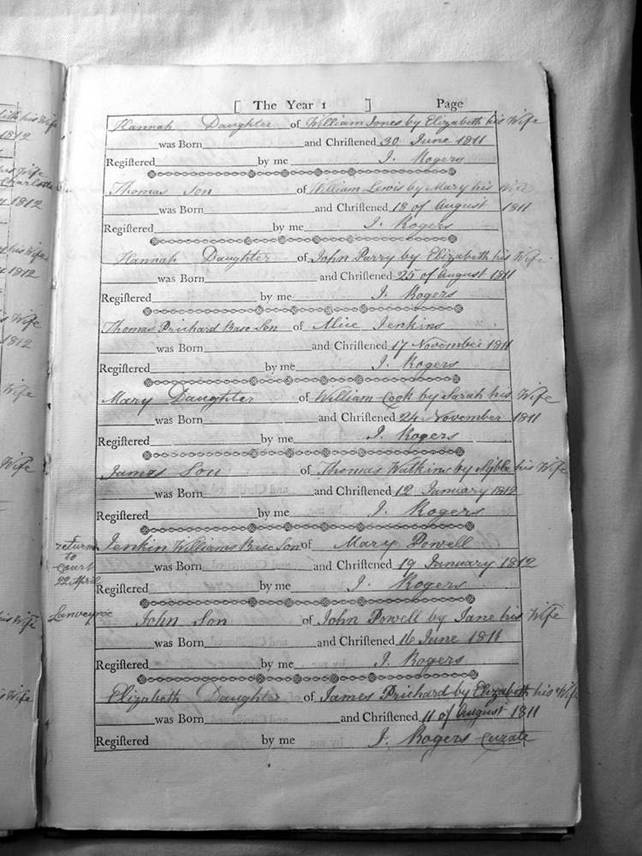 [ The Year 1 ] Page
Hannah Daughter of William Jones by Elizabeth his Wife
was Born and Chriſtened 30 June 1811
Regiſtered by me J. Rogers
Thomas Son of William Lewis by Mary his Wife
was Born and Chriſtened 18 of August 1811
Regiſtered by me J. Rogers
Hannah Daughter of John Parry by Elizabeth his Wife
was Born and Chriſtened 25 of August 1811
Regiſtered by me J. Rogers
Thomas Prichard Base Son of Alice Jenkins
was Born and Chriſtened 17 November 1811
Regiſtered by me J. Rogers
Mary Daughter of William Cook by Sarah his Wife
was Born and Chriſtened 24 November 1811
Regiſtered by me J. Rogers
James Son of Thomas Watkins by his Wife
was Born and Chriſtened 12 January 1812
Regiſtered by me J. Rogers
return
to
Court
22 April
Jenkin Williams Base Son of Mary Powell
was Born and Chriſtened 19 January 1812
Regiſtered by me J. Rogers
John Son of John Powell by Jane his Wife
was Born and Chriſtened 16 June 1811
Regiſtered by me J. Rogers
Elizabeth Daughter of James Prichard by Elizabeth his Wife
was Born and Chriſtened 11 of August 1811
Regiſtered by me J. Rogers Curate